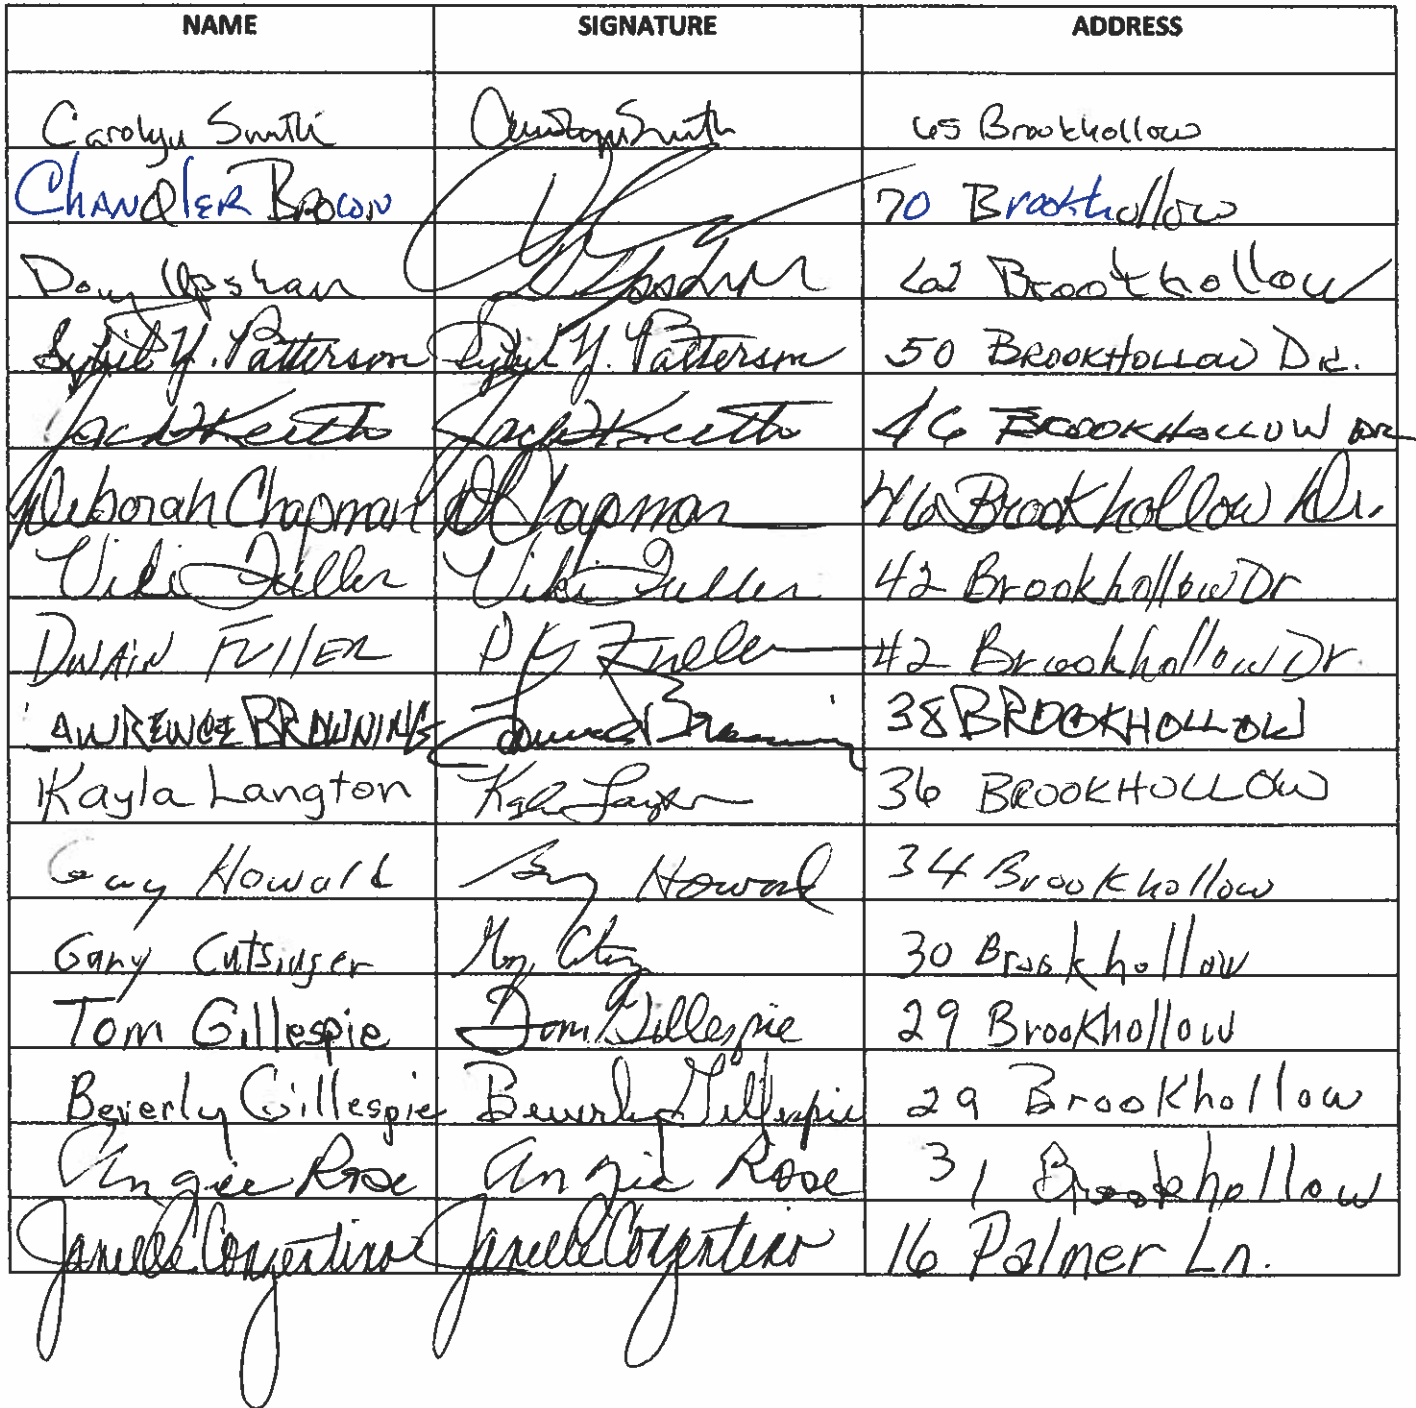 NAME SIGNATURE ADDRESS
Carolyn Smith Carolyn Smith 65 Brookhollow
CHANDLER BROWN 70 Brookhollow
Doug Upshaw 62 Brookhollow
Sybil Y. Patterson Sybil Y. Patterson 50 BROOKHOLLOW DR.
Jack Keith Jack Keith 46 BROOKHOLLOW DR
Deborah Chapman D Chapman 46 Brookhollow Dr.
Viki Fuller Viki Fuller 42 Brookhollow Dr
DWAIN FULLER Fuller 42 Brookhollow Dr.
LAWRENCE BROWNING Browning 38 BROOKHOLLOW
Kayla Langton 36 BROOKHOLLOW
Gary Howard Gary Howard 34 Brookhollow
Gary Cutsinger 30 Brookhollow
Tom Gillespie Tom Gillespie 29 Brookhollow
Beverly Gillespie Beverly Gillespie 29 Brookhollow
Angie Rose Angie Rose 31 Brookhollow
Janelle Janelle 16 Palmer Ln.